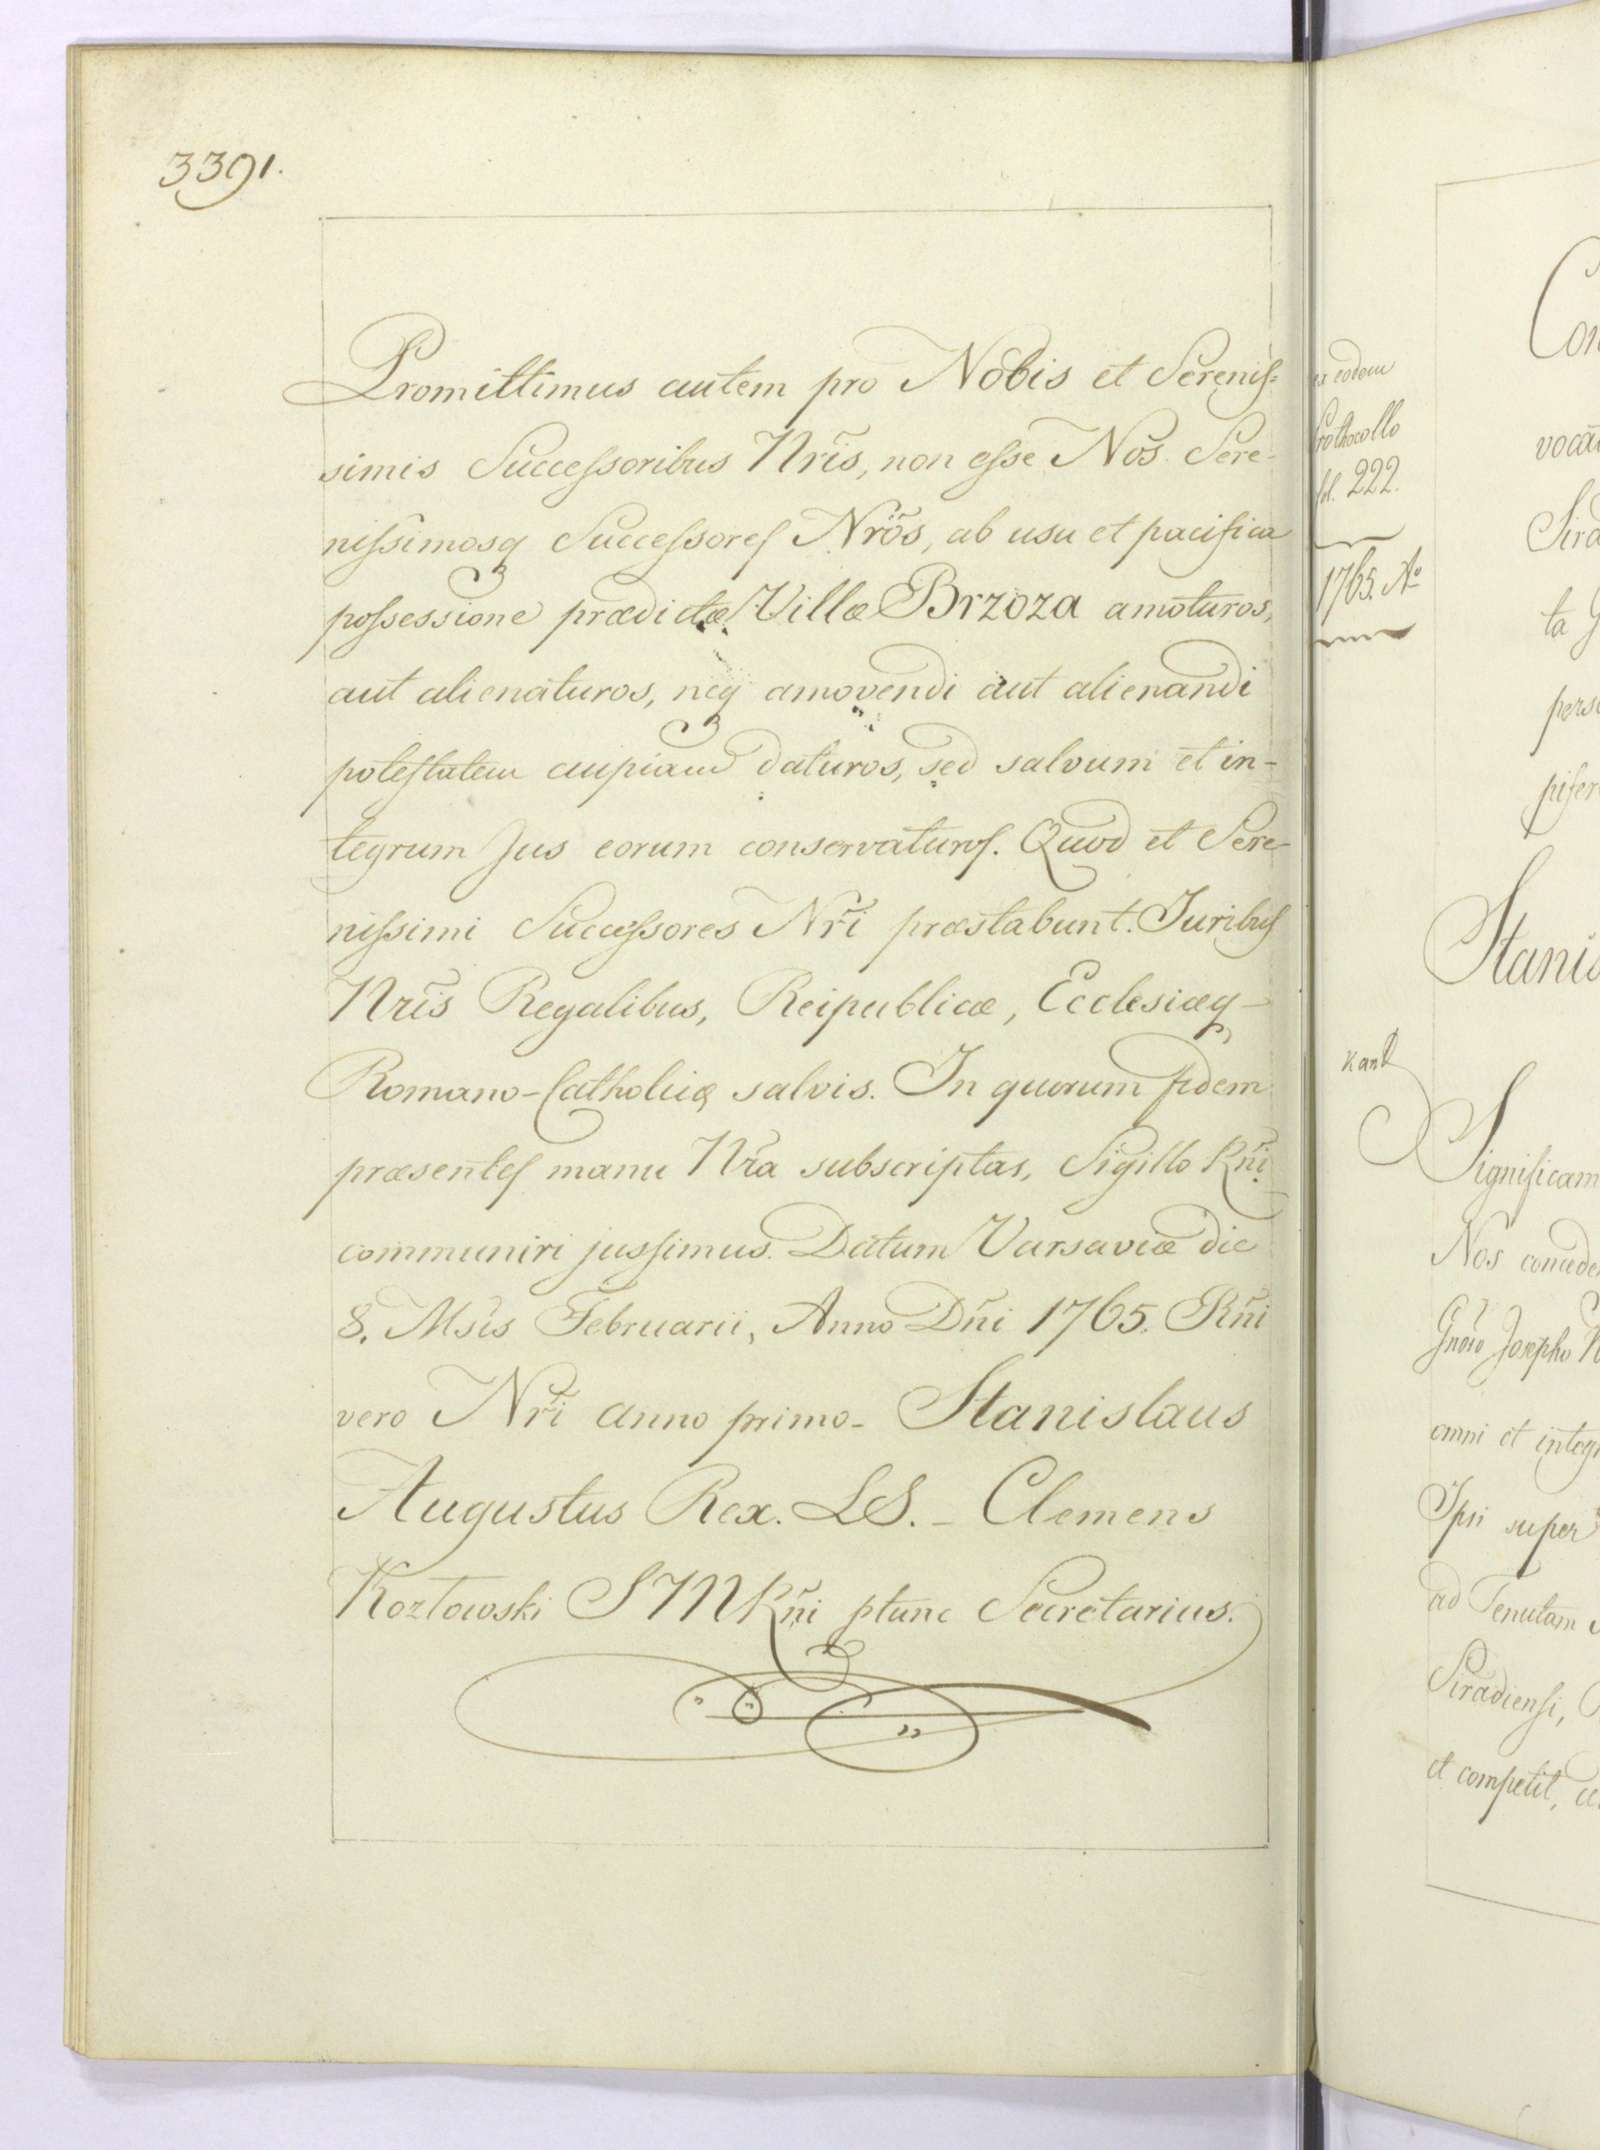 3391.
Promittimus autem pro Nobis et Serenis=
simis Successoribus Nris, non esse Nos Sere-
nissimosq Successores Nros, ab usu et pacifica
possessione prædictæ Villæ Brzoza amoturos,
aut alienaturos, neq amovendi aut alienandi
potestatem cuipiam daturos, sed salvum et in-
tegrum Jus eorum conservaturos. Quod et Sere-
nissimi Successores Nri præstabunt. Juribus
Nris Regalibus, Reipublicæ, Ecclesiæq-
Romano-Catholicæ salvis. In quorum fidem
præsentes manu Nra subscriptas, Sigillo Rni
communiri jussimus. Datum Varsaviæ die
8. Msis Februarii, Anno Dni 1765. Rni
vero Nri anno primo- Stanislaus
Augustus Rex. LS. - Clemens
Kozłowski SMRni ptunc Secretarius.
ex eodem
Prothocollo
fol. 222.
1765. Ao
Con
vocat
Sira
ta G
perso
piser
Stanis
Significam
Nos conceden
Gnoso Josepho
omni et integr
Ipsi super
ad Tenutam
Siradiensi,
et competit,